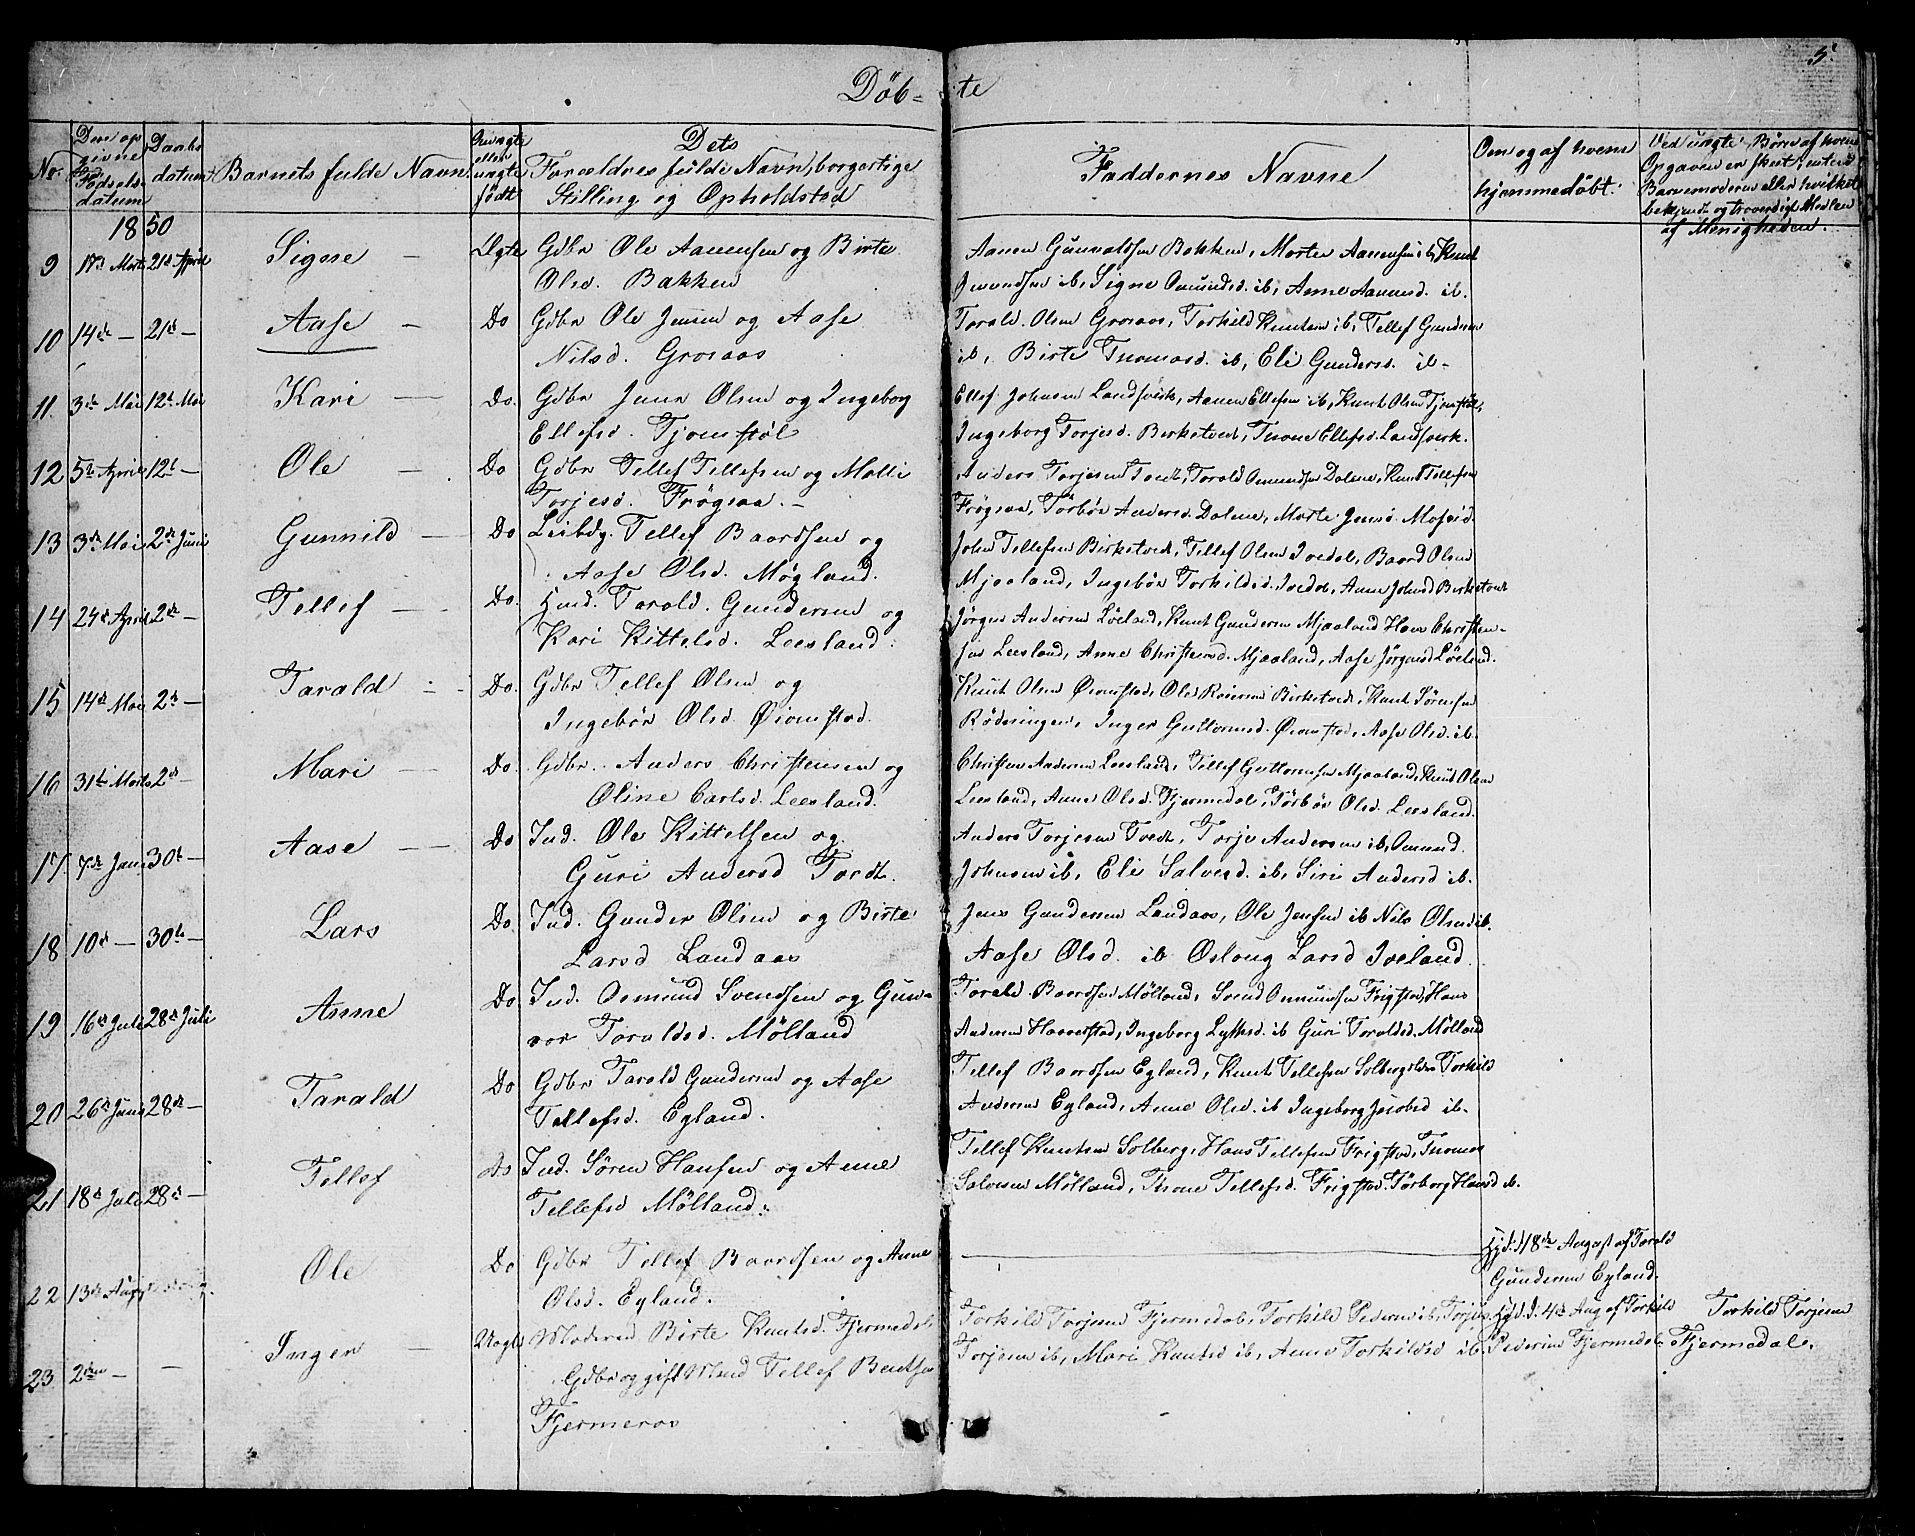 Döb-te
5.
No.
Den op
givne
Födsels-
datum
Daabs
datum
Barnets fulde Navn
Om ægte
eller
uægte
födt
Dets
Forældres fulde Navn, borgerlige
Stilling og Opholdsted
Faddernes Navne
Om og af hvem
hjemmedöbt.
Ved uægte Börn af hvem
Opgaven er skeet, enten
Barnemoderen eller hvilket
bekjendt og troværdigt Medlem
af Menigheden.
1850
9 17d Marts 21d April Signe - Ægte Gdbr Ole Aanensen og Birte
Olsd. Bakken
Aanen Gunvaldsen Bakken, Morten Aanensen ib, Knut
ib, Signe Omundsd. ib, Anne Aanensd. ib.
10 14de - 21d - Aase - Do Gdbr Ole Jensen og Aase
Nilsd. Grosaas
Torald Olsen Grosaas, Torkild Knutsen ib, Tellef Gundersen
ib, Birte Thomasd. ib, Eli Gundersd. ib-
11 3die Mai 12d Mai Kari - Do. Gdbr Jens Olsen og Ingeborg
Ellefsd. Tjomstöl
Ellef Johnsen Landsverk, Aanen Ellefsen ib, Knut Olsen Tjomstöl,
Ingeborg Torjesd. Birketvedt, Thone Ellefsd. Landsverk.
12 5te April 12t - Ole - Do Gdbr Tellef Tellefsen og Malli
Torjesd. Frögsaa. -
Anders Torjesen Tvedt, Torald Omundsen Dalene, Knut Tellefsen
Frögsaa, Törbör Andersd. Dalene, Marte Jensd.
13 3die Mai 2den Juni Gunnild - Do Leibdg. Tellef Baardsen og
Aase Olsd. Mögland.
John Tellefsen Birketvedt, Tellef Olsen Ivedal, Baard Olsen
Mjaaland, Ingebör Torkildsd. Ivedal, Anne Johnsd Birketvedt
14 24d April 2den - Tellef - Do. Hmd. Tarald Gundersen og
Kari Kittelsd. Leesland.
Jörgen Andersen Löeland, Knut Gundersen Mjaaland Hans Christen-
sen Leesland, Anne Christensd. Mjaaland, Aase Jörgensd Löeland.
15 14d Mai 2d - Tarald - Do. Gdbr Tellef Olsen og
Ingebör Olsd Öiomstad.
Knut Olsen Öiomstad, Ole Reiersen Birketvedt, Knut Sörensen
Rödningen, Inger Guttormsd. Öiomstad, Aase Olsd. ib.
16 31te Marts 2d - Mari - Do. Gdbr. Anders Christensen og
Oline Carlsd. Leesland.
Christen Andersen Leesland, Tellef Guttormsen Mjaaland, Knut Olsen
Leesland, Anne Olsd. Fjermedal, Törbör Olsd. Leesland.
17 7de Juni 30t - Aase - Do Ind. Ole Kittelsen og
Guri Andersd Tvedt.
Anders Torjesen Tvedt, Torje Andersen ib, Omund
Johnsen ib, Eli Salvesd. ib, Siri Andersd ib.
18 10d - 30te - Lars Do. Ind. Gunder Olsen og Birte
Larsd Landaas
Jens Gundersen Landaas, Ole Jensen ib Nils Olsen ib.
Aase Olsd. ib Oslaug Larsd Iveland.
19 16d Juli 28d Juli Anne Do Ind. Osmund Svendsen og Gun-
vor Taraldsd. Mölland
Torald Baardsen Mölland, Svend Omundsen Frigstad, Hans
Andersen Haverstad, Ingeborg ib Guri Toraldsd. Mölland
20 26d Juni 28d - Tarald Do Gdbr Tarald Gundersen og Aase
Tellefsd. Egland.
Tellef Baardsen Egland, Knut Tellefsen Solberg, Torkild
Andersen Egland, Anne Olsd. ib Ingeborg Jacobsd ib-
21 18d Juli 28d - Tellef Do Ind. Sören Hansen og Anne
Tellefsd Mölland.
Tellef Knutsen Solberg, Hans Tellefsen Frigstad, Thomas
Salvesen Mölland, Thone Tellefsd. Frigstad, Törborg Hansd ib.
22 13de Aug Ole Do Gdbr Tellef Baardsen og Anne
Olsd. Egland.
Hjd. 18de August af Torald
Gundersen Egland.
23 2den - - Inger - Uægte Moderen Birte Knutsd. Fjermedal
Gdbr og gift Mand Tellef Bentsen
Fjermeros
Torkild Torjesen Fjermedal, Torkild Pedersen ib, Torjus
Torjesen ib, Mari Knutsd ib, Anne Torkildsd ib.
Hjd. d. 4d Aug af Torkild
Pedersen Fjermedal
Torkild Torjesen
Fjermedal.